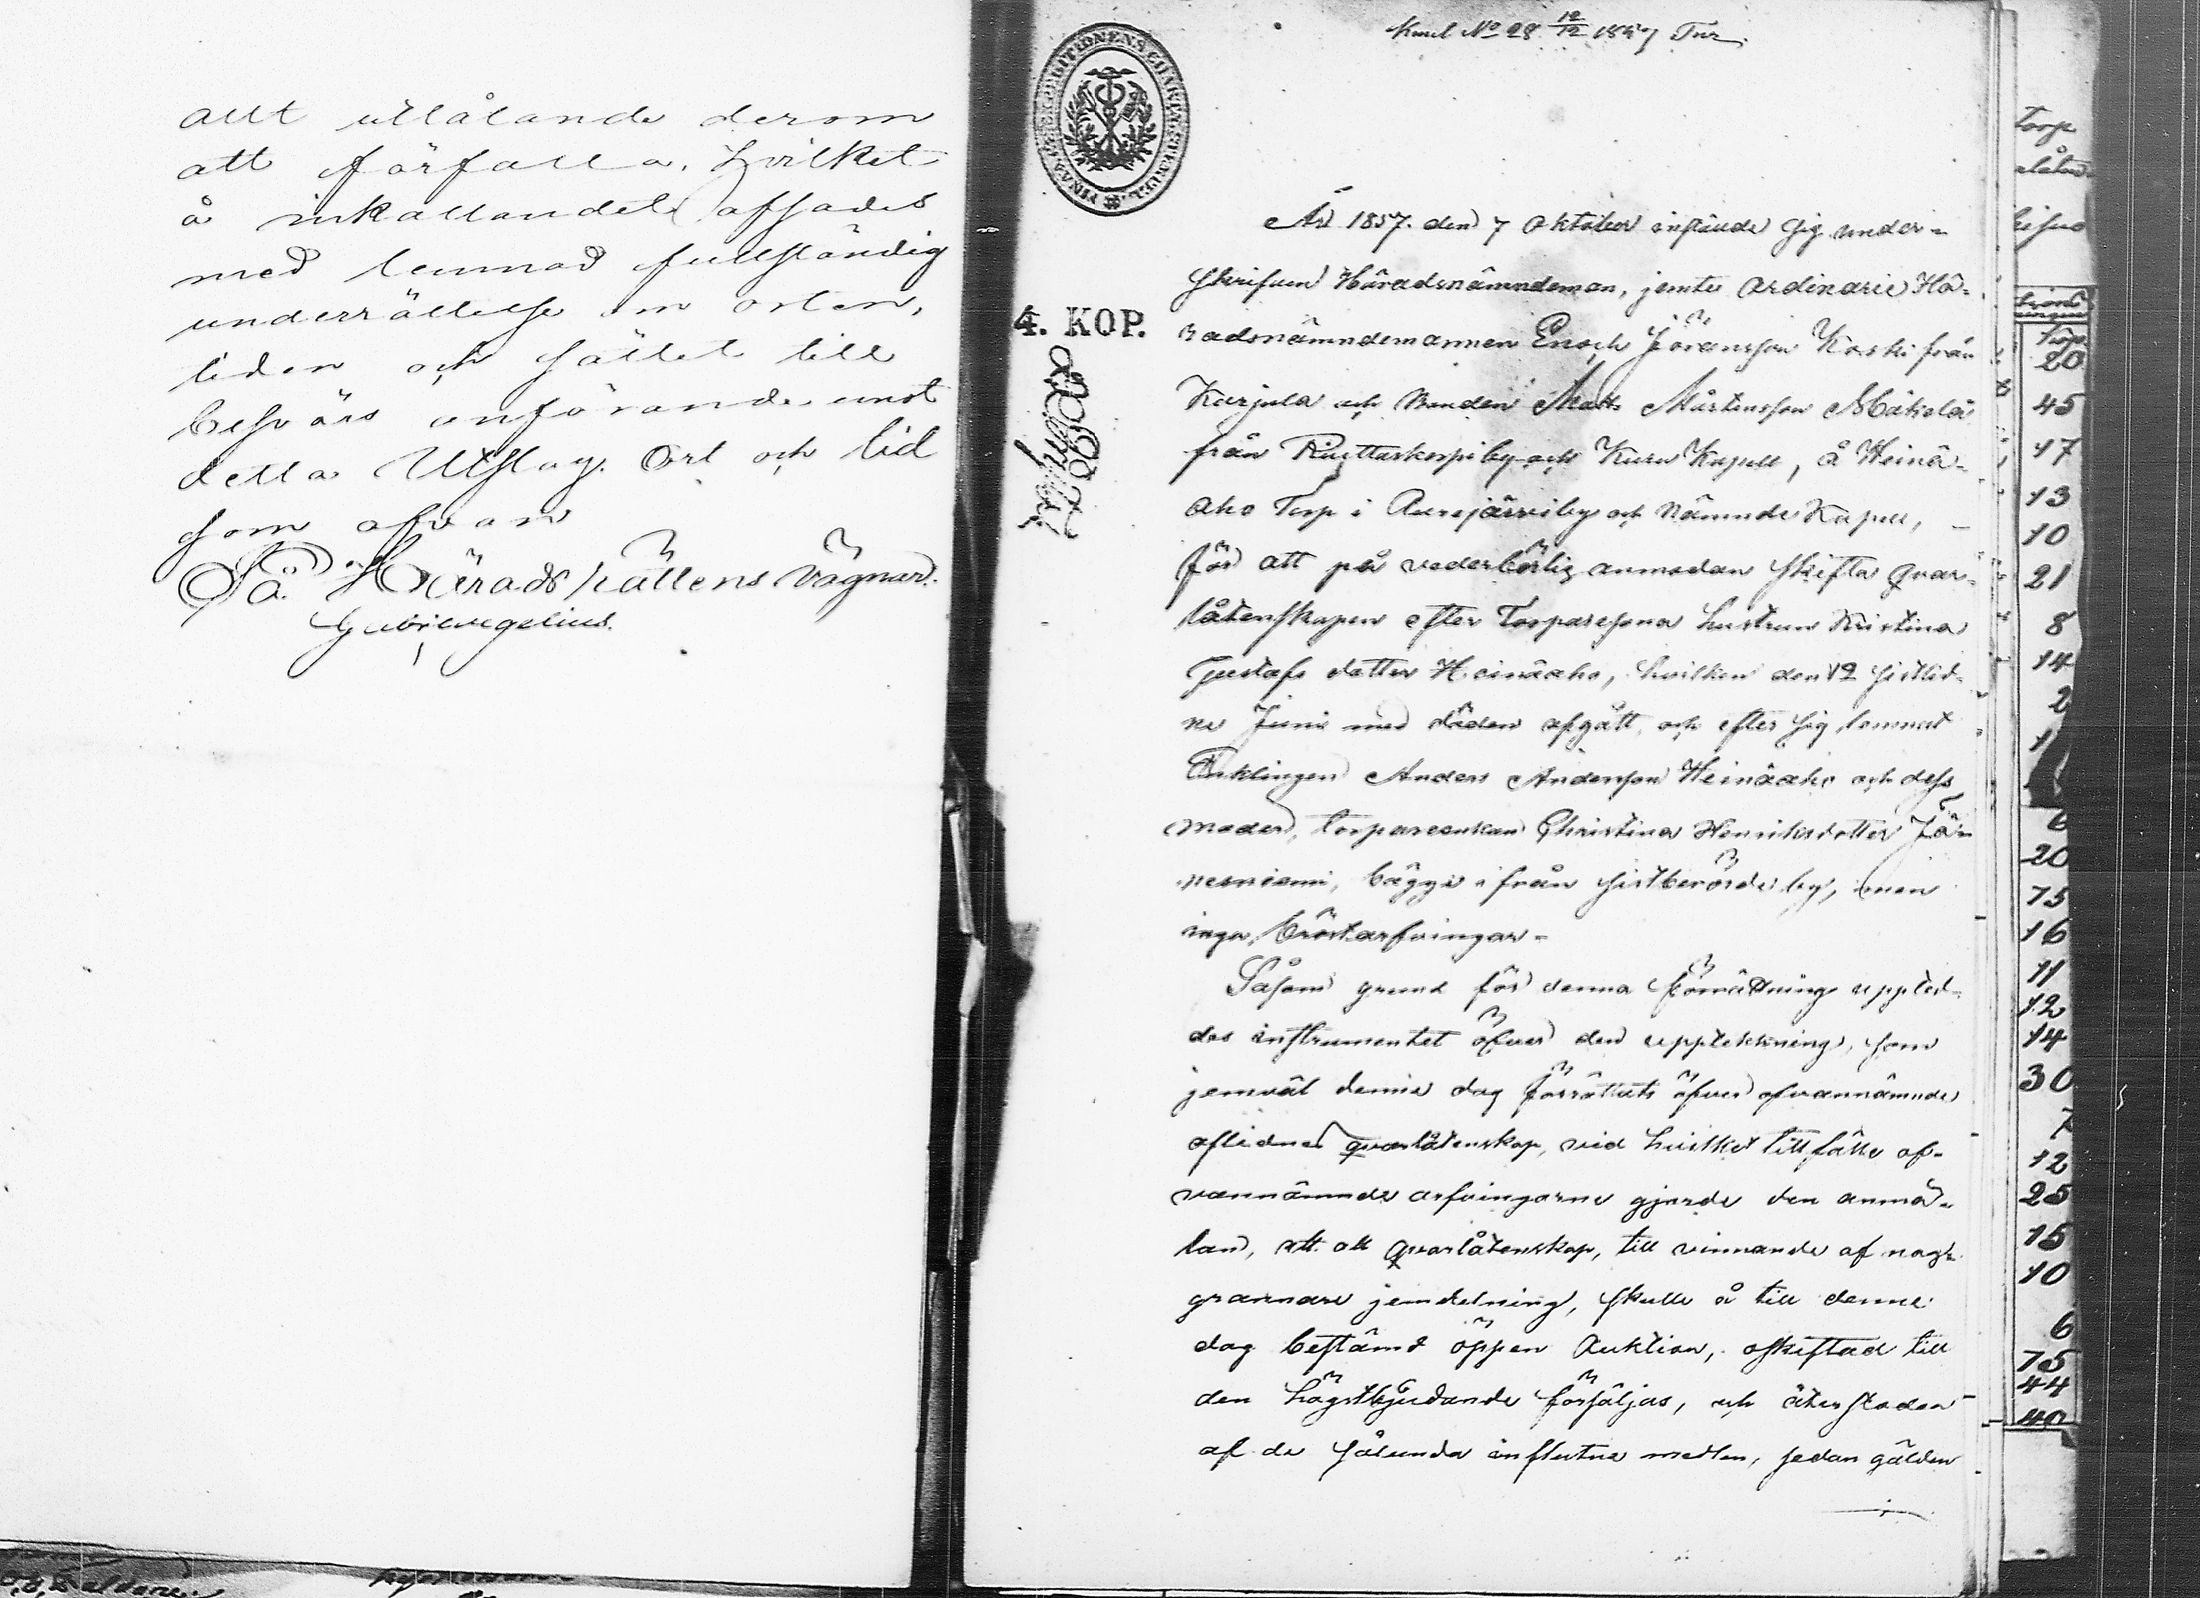 allt utlåtande derom
att förfalla. Hvilket
å inkallandet afsades
med lemnad fullständig
underrättelse om orten,
tiden och sättet till
besvärs anförande emot
detta Utslag. Ort och tid
som ofvan
På Häradsrättens vägnar.
No 28 12/12 1857
4. KOP.
År 1857. den 7 Oktober instälde sig under-
skrifven Häradsnämndeman, jemte Ordinarie Hä-
radsnämndemannen Enoch Jöransson Koski från
Karjula och Bonden Matts Mårtensson Mäkelä
från by och Kuru Kapell, å Heinä-
aho Torp i Aurejärvi by och nämnde Kapell,
för att på vederbörlig anmodan skifta qvar-
låtenskapen efter Torparesona hustrun Kristina
Gustafs dotter Heinäaho, hvilken den 12 sistlid-
ne Junii med döden afgått, och efter sig lemnat
Enklingen Anders Andersson Heinäaho och dess
moder, torpareenkan Christina Henriksdotter Jä-
nesniemi, bägge ifrån sistberörde by, men
inga bröstarfvingar.
Såsom grund för denna förrättning upplad-
des instrumentet öfver den uppteckning, som
jemväl denne dag förrättats öfver ofvannämnde
aflidnes qvarlåtenskap, vid hvilket tillfälle of-
vannämnde arfvingarne gjorde den anmä-
lan, att all qvarlåtenskap, till vinnande af nog-
grannare jemdelning, skulle å till denne
dag bestämd öppen Auktion, oskiftad till
den högstbjudande försäljas, och återstoden
af de sålunda influtna medlen, sedan gälden
Torp
20
45
17
13
10
21
8
14
2
6
20
75
16
11
12
14
30
7
12
25
15
10
6
75
44
40